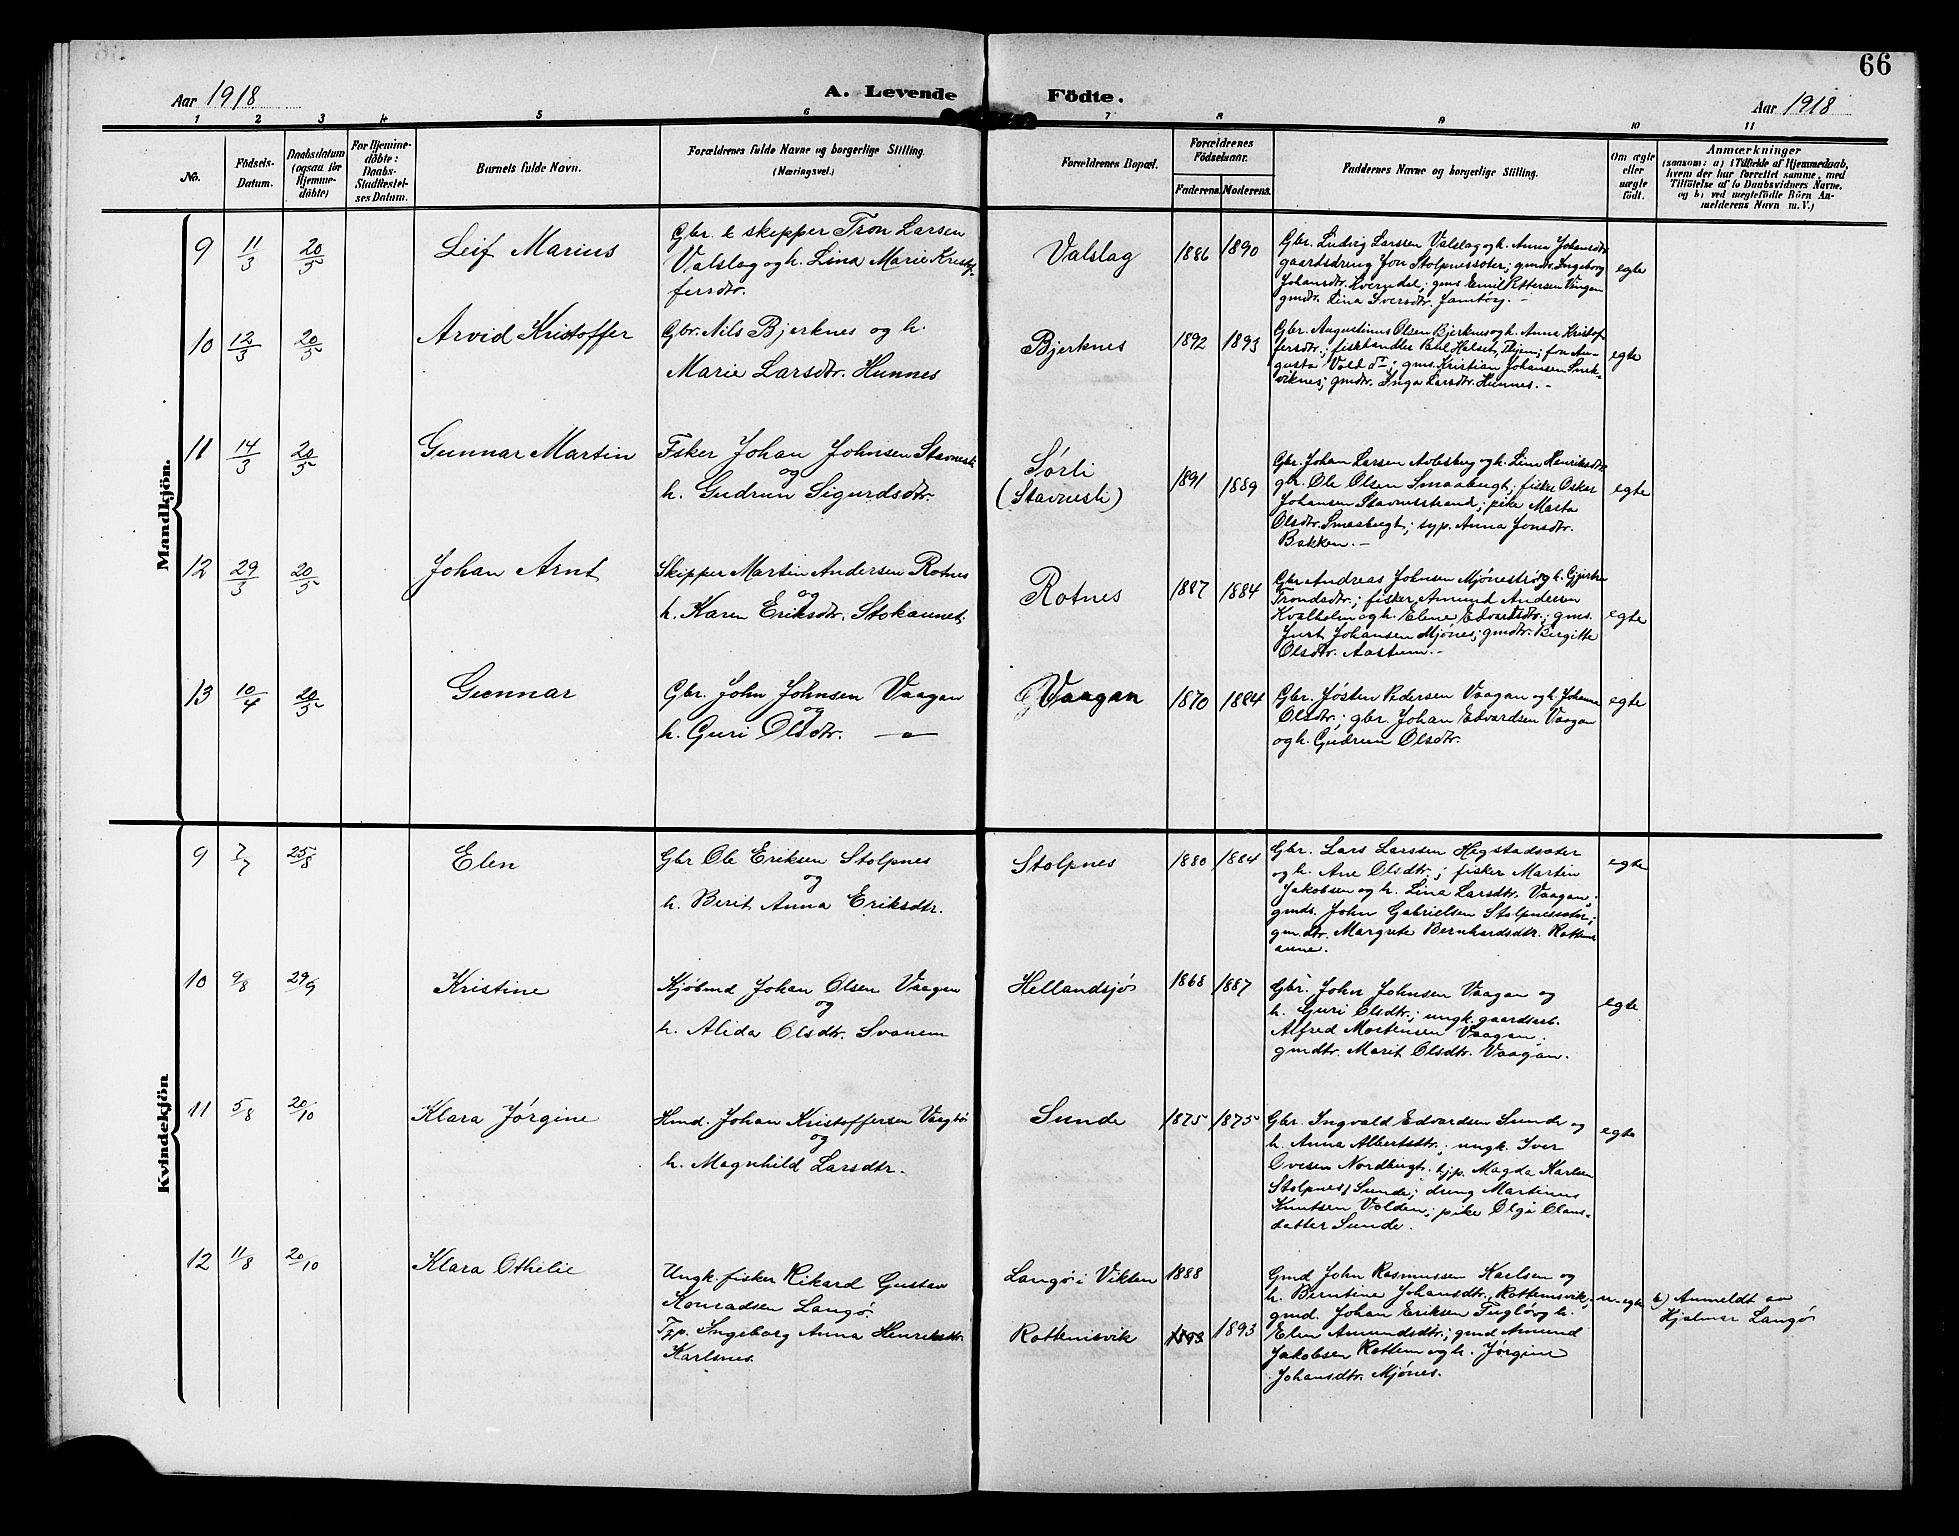 Aar 1918
A. Levende Födte.
66
Aar 1918
1 2 3 4 5 6 7 8 9 10 11
No.
Födsels-
Datum.
Daabsdatum
(ogsaa for
Hjemme-
döbte)
For Hjemme-
döbte:
Daabs-
Stadfæstel-
ses Datum.
Barnets fulde Navn.
Forældrenes fulde Navne og borgerlige Stilling.
(Næringsvei.)
Forældrenes Bopæl.
Forældrenes
Födselsaar.
Faderens. Moderens.
Faddernes Navne og borgerlige Stilling.
Om ægte
eller
uægte
födt.
Anmærkninger
(saasom: a) i Tilfælde af Hjemmedaab,
hvem der har forrettet samme, med
Tilföielse af to Daabsvidners Navne,
og b) ved uægtefödte Börn An-
melderens Navn m. V.)
Mandkjön.
9 11/3 20/5
Leif Marius
Gbr. & skipper Tron Larsen
Valslag og h. Lina Marie Kristof-
fersdtr.
Valslag
1886 1890
Gbr. Ludvig Larssen Valslag og h. Anna Johansdtr
gaardsdreng Jon Stolpnessæter; gmdtr. Ingeborg
Johansdtr. Kverndal; gms Emil Pettersen Vaagan
gmdtr. Lina Iversdtr. Jamtöy. –
egte
10 12/3 20/5
Arvid Kristoffer
Gbr. Nils Bjerknes og h.
Marie Larsdtr. Hunnes
Bjerknes
1892 1893
Gbr. Augustinus Olsen Bjerknes og h. Anna Kristof-
fersdtr.; fiskhandler Paul Halset, Thjem; fru Au-
gusta Vold; gms. Kristian Johansen Snek-
viknes; gmdtr. Inga Larsdtr. Hunnes. –
egte
11 14/3 20/5
Gunnar Martin
Fsker Johan Johnsen Stavnesli
og
h. Gudrun Sigurdsdtr.
Sørli
(Stavnesli)
1891 1889
Gbr. Johan Larsen Aalesberg og h. Line Henriksdtr
gbr. Ole Olsen Smaabugt; fisker Oskar
Johansen Stavnesstrand; pike Marta
Olsdtr. Smaabugt; syp. Anna Jonsdtr.
Bakken. –
egte
12 29/3 20/5
Johan Arnt
Skipper Martin Andersen Rotnes
og
h. Karen Eriksdtr. Stokaunet.
Rotnes
1887 1884
Gbr Andreas Johnsen Mjöneströ og h. Gjertru
Trondsdtr.; fisker Amund Andersen
Kvalholm og h. Elene Edvardsdtr.; gms.
Kurt Johansen Mjönes; gmdtr. Birgitte
Olsdtr. Aastum. –
egte
13 10/4 20/5
Gunnar
Gbr. John Johnsen Vaagan
og
h. Guri Olsdtr. — " —
Vaagan
1870 1884
Gbr. Jøsten Pedersen Vaagan og h. Johanna
Olsdtr.; gbr. Johan Edvardsen Vaagan
og h. Gudrun Olsdtr.
egte
Kvindekjön
9 7/7 25/8
Elen
Gbr Ole Eriksen Stolpnes
og
h. Berit Anna Eriksdtr.
Stolpnes
1880 1884
Gbr. Lars Larssen Hegstadsæter
og h. Ane Olsdtr.; fisker Martin
Jakobsen og h. Lina Larsdtr. Vaagan;
gmds. John Gabrielsen Stolpnessæter;
gm.dtr. Margrete Bernhardsdtr. Rottems
aune.
egte
10 9/8 29/9
Kristine
Kjöbmd Johan Olsen Vaagan
og
h. Alida Olsdtr. Svanem
Hellandsjö
1868 1887
Gbr. John Johnsen Vaagan og
h. Guri Olsdtr.; ungk. gaardsarb.
Alfred Mortensen Vaagan;
gmdtr. Marit Olsdtr. Vaagan.
egte
11 5/8 20/10
Klara Jørgine
Hmd. Johan Kristoffersen Vaagö
og
h. Magnhild Larsdtr.
Sunde
1875 1875
Gbr. Ingvald Edvardsen Sunde og
h. Anna Albertsdtr.; ungk. Iver
Ovesen Nordbugt. tjp. Magda Karlsen
Stolpnes / Sunde; dreng Martinus
Knutsen Volden; pike Olga Olaus-
datter Sunde.
egte
12 11/8 20/10
Klara Othelie
Ungk. fisker Rikard Gustav
Konradsen Langö.
Tjp. Ingeborg Anna Henriksdtr
Karlsnes.
Langö i Vikten
Rottemsvik
1888
1893 1893
Gmd John Rasmussen Karlsen og
h. Berntine Johansdtr. Rottemsvik;
gmd. Johan Eriksen Fuglö og h.
Elen Amundsdtr.; gmd Amund
Jakobsen Rottem og h. Jørgine
Johansdtr. Mjönes.
u-egte
b) Anmeldt av
Hjalmar Langö